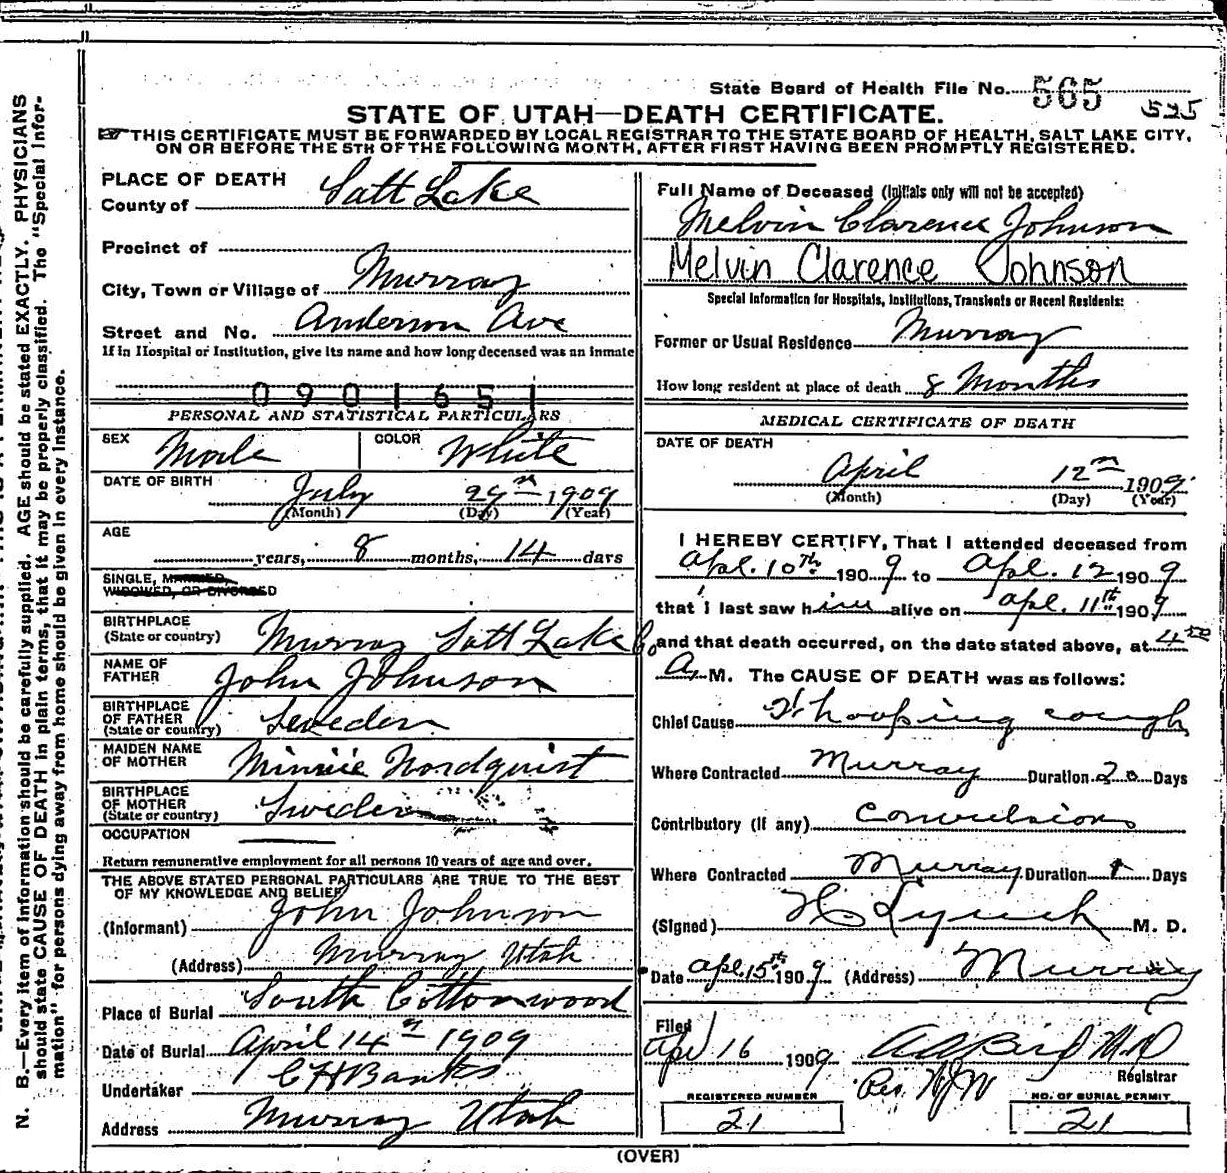 State Board of Health File No. 565
525
STATE OF UTAH—DEATH CERTIFICATE.
THIS CERTIFICATE MUST BE FORWARDED BY LOCAL REGISTRAR TO THE STATE BOARD OF HEALTH, SALT LAKE CITY,
ON OR BEFORE THE 5TH OF THE FOLLOWING MONTH, AFTER FIRST HAVING BEEN PROMPTLY REGISTERED.
N. B.—Every item of information should be carefully supplied. AGE should be stated EXACTLY. PHYSICIANS
should state CAUSE OF DEATH in plain terms, that it may be properly classified. The "Special Infor-
mation" for persons dying away from home should be given in every instance.
PLACE OF DEATH
County of Salt Lake
Precinct of
City, Town or Village of Murray
Street and No. Anderson Ave
If in Hospital or Institution, give its name and how long deceased was an inmate
0901651
PERSONAL AND STATISTICAL PARTICULARS
SEX Male COLOR White
DATE OF BIRTH July 29th 1909
(Month) (Day) (Year)
AGE
years, 8 months, 14 days
SINGLE, MARRIED,
WIDOWED, OR DIVORCED
BIRTHPLACE
(State or country) Murray Salt Lake Co
NAME OF
FATHER John Johnson
BIRTHPLACE
OF FATHER
(State or country) Sweden
MAIDEN NAME
OF MOTHER Minnie Nordquist
BIRTHPLACE
OF MOTHER
(State or country) Sweden
OCCUPATION
Return remunerative employment for all persons 10 years of age and over.
THE ABOVE STATED PERSONAL PARTICULARS ARE TRUE TO THE BEST
OF MY KNOWLEDGE AND BELIEF
(Informant) John Johnson
(Address) Murray Utah
Place of Burial South Cottonwood
Date of Burial April 14th 1909
Undertaker C H Banks
Address Murray Utah
Full Name of Deceased (Initials only will not be accepted)
Melvin Clarence Johnson
Melvin Clarence Johnson
Special Information for Hospitals, Institutions, Transients or Recent Residents:
Former or Usual Residence Murray
How long resident at place of death 8 Months
MEDICAL CERTIFICATE OF DEATH
DATE OF DEATH
April 12th 1909
(Month) (Day) (Year)
I HEREBY CERTIFY, That I attended deceased from
Apl. 10th 1909 to Apl. 12 1909
that I last saw him alive on Apl. 11th 1909
and that death occurred, on the date stated above, at 4 00
A. M. The CAUSE OF DEATH was as follows:
Chief Cause Whooping cough
Where Contracted Murray Duration 20 Days
Contributory (If any) Convulsions
Where Contracted Murray Duration 1 Days
(Signed) H C Lynch M. D.
Date Apl. 15th 1909 (Address) Murray
Filed
Apl 16 1909 Bird M D
Registrar
REGISTERED NUMBER
21
NO. OF BURIAL PERMIT
21
(OVER)